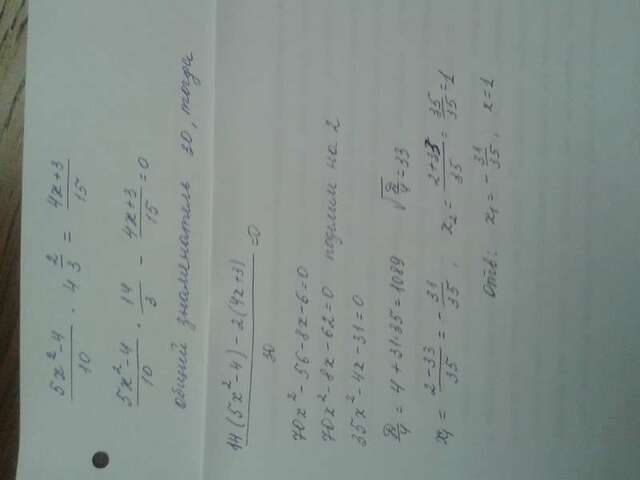 5x²-4/10 · 4 2/3 = 4x+3/15
5x²-4/10 · 14/3 - 4x+3/15 = 0
общий знаменатель 30, тогда
14(5x²-4)-2(4x+3)/30 = 0
70x²-56-8x-6=0
70x²-8x-62=0 поделим на 2
35x²-4x-31=0
D/4 = 4+31·35=1089 √D/4 = 33
x₁ = 2-33/35 = -31/35, x₂ = 2+33/35 = 35/35 = 1
Отв: x₁ = -31/35, x=1